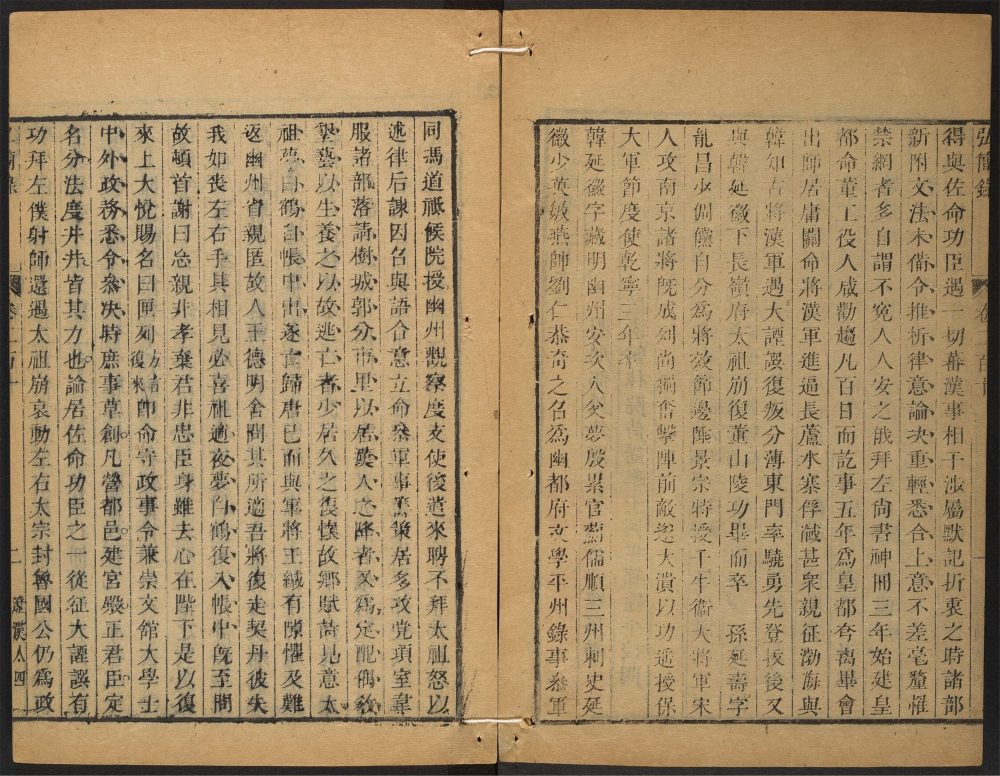 弘簡錄
得與佐命功臣遇一切蕃漢事相干涉屬默記折衷之時諸部
新附文法未備令推析律意論决重輕悉合上意不差毫釐惟
禁網者多自謂不寃人人安之俄拜左尚書神冊三年始建皇
都命董工役人咸勸趨凡百日而訖事五年為皇都夸离畢會
出師居庸關命將漢軍進逼長蘆水寨俘馘甚衆親征渤海與
韓知古將漢軍遇大諲譔復叛分薄東門率驍勇先登拔後又
與韓延徽下長嶺府太祖崩復董山陵功畢而卒 孫延壽字
胤昌少倜儻自分為將效節邊陲景宗特授千牛衛大將軍宋
人攻南京諸將既成列尚獨奮擊陣前敵迯大潰以功遥授保
大軍節度使乾寧三年卒
韓延徽字藏明幽州安次人父夢殷累官薊儒順三州刺史延
徽少英敏燕帥劉仁恭奇之召為幽都府文學平州錄事叅軍
同馮道祗候院授幽州觀察度支使後遣來聘不拜太祖怒以
述律后諫因召與語合意立命叅軍事籌策居多攻党項室韋
服諸部落請樹城郭分市里以居漢人之降者又為定配偶敎
墾藝以生養之以故逃亡者少居久之復懷故鄉賦詩見意太
祖夢白鶴自帳中出遂亡歸唐已而與軍將王緘有隙懼及難
返幽州省親匿故人王德明舍問其所適吾將復走契丹彼失
我如喪左右手其相見必喜祖適夜夢白鶴復入帳中旣至問
故頓首謝曰忘親非孝棄君非忠臣身雖去心在陛下是以復
來上大悅賜名曰匣列復來即命守政事令兼崇文館大學士
中外政務悉令叅决時庶事草創凡營都邑建宮殿正君臣定
名分法度井井皆其力也論居佐命功臣之一後征大諲譔有
功拜左僕射師還遇太祖崩哀動左右太宗封魯國公仍為政
二 遼漢人四